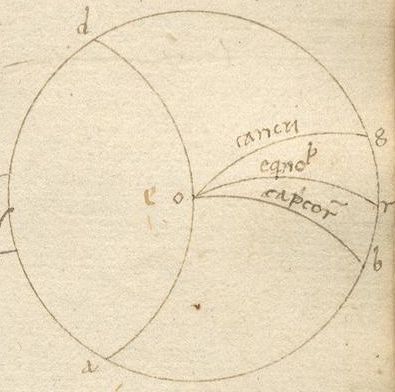 d
cancri
g
eqno
e o
r
capcor
b
a